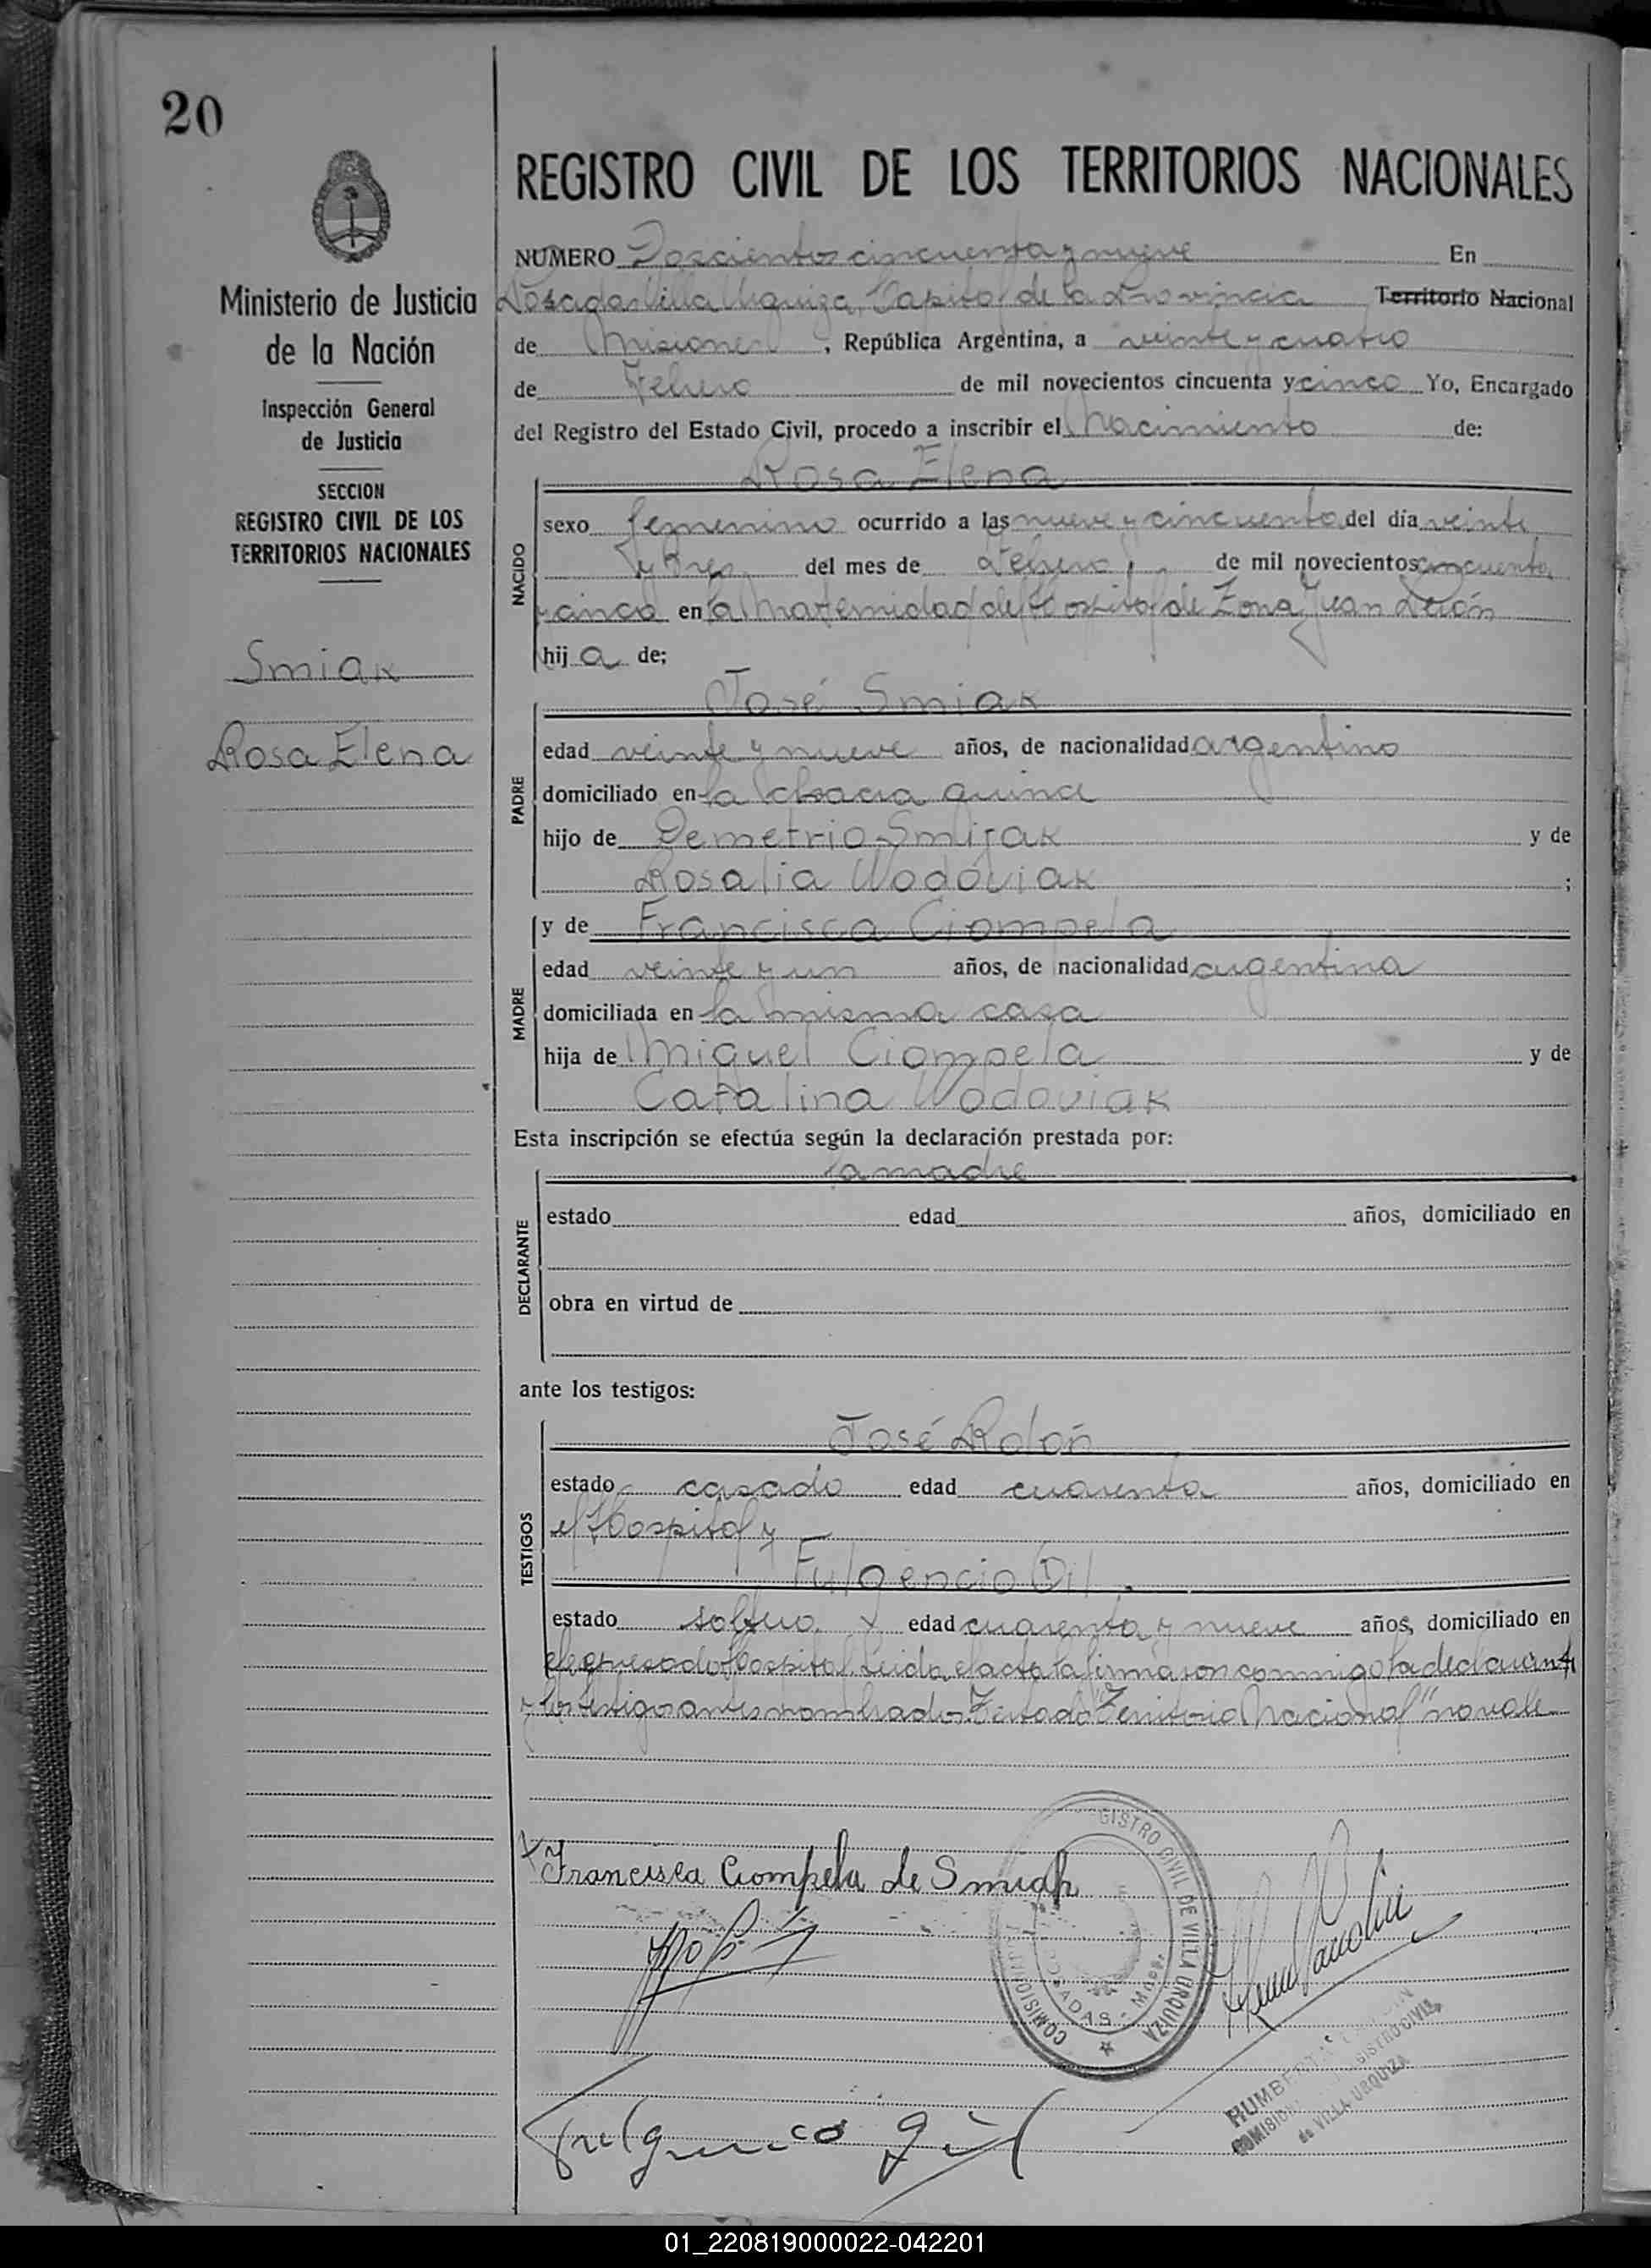 20
REGISTRO CIVIL DE LOS TERRITORIOS NACIONALES
Ministerio de Justicia
de la Nación
Inspección General
de Justicia
SECCION
REGISTRO CIVIL DE LOS
TERRITORIOS NACIONALES
Smiak
Rosa Elena
NUMERO Doscientos cincuenta y nueve En
Posadas Villa Urquiza, Capital de la Provincia Territorio Nacional
de Misiones, República Argentina, a veinte y cuatro
de Febrero de mil novecientos cincuenta y cinco Yo, Encargado
del Registro del Estado Civil, procedo a inscribir el Nacimiento de:
NACIDO
Rosa Elena
sexo femenino ocurrido a las nueve y cincuenta del día veinte
y tres del mes de Febrero, de mil novecientos cincuenta
y cinco en la Maternidad del Hospital de Zona Juan Perón
hija de;
PADRE
José Smiak
edad veinte y nueve años, de nacionalidad argentino
domiciliado en la chacra quince
hijo de Demetrio Smijak y de
Rosalia Wodoviak ;
MADRE
y de Francisca Ciompela
edad veinte y un años, de nacionalidad argentina
domiciliada en la misma casa
hija de Miguel Ciompela y de
Catalina Wodoviak
Esta inscripción se efectúa según la declaración prestada por:
DECLARANTE
la madre
estado edad años, domiciliado en
obra en virtud de
ante los testigos:
TESTIGOS
José Rolón
estado casado edad cuarenta años, domiciliado en
el Hospital y
Fulgencio Gil
estado soltero edad cuarenta y nueve años, domiciliado en
el expresado Hospital. Leida el acta la firmaron conmigo la declarante
y los testigos antes nombrados. Testado "Territorio Nacional" no vale
Francisca Ciompela de Smiak
GISTRO CIVIL DE VILLA URQUIZA
COMISION
POSADAS - Mnes.
HUMBER
COMISION
GISTRO CIVIL
de VILLA URQUIZA
Fulgencio Gil
01_220819000022-042201